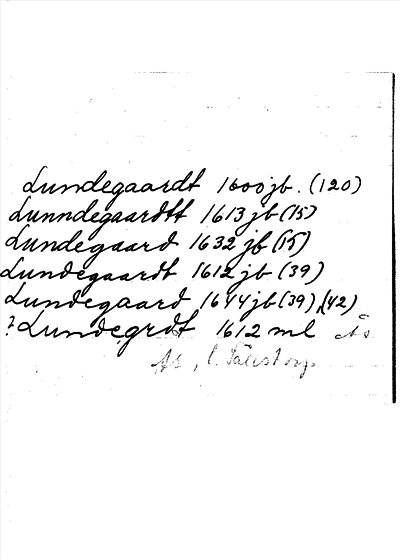 Lundegaardt 1600 jb. (120)
Lunndegaardtt 1613 jb (15)
Lundegaard 1632 jb (15)
Lundegaardt 1612 jb (39)
Lundegaard 1644 jb (39), (42)
? Lundegrdt 1612 ml Ås
Ås, l.